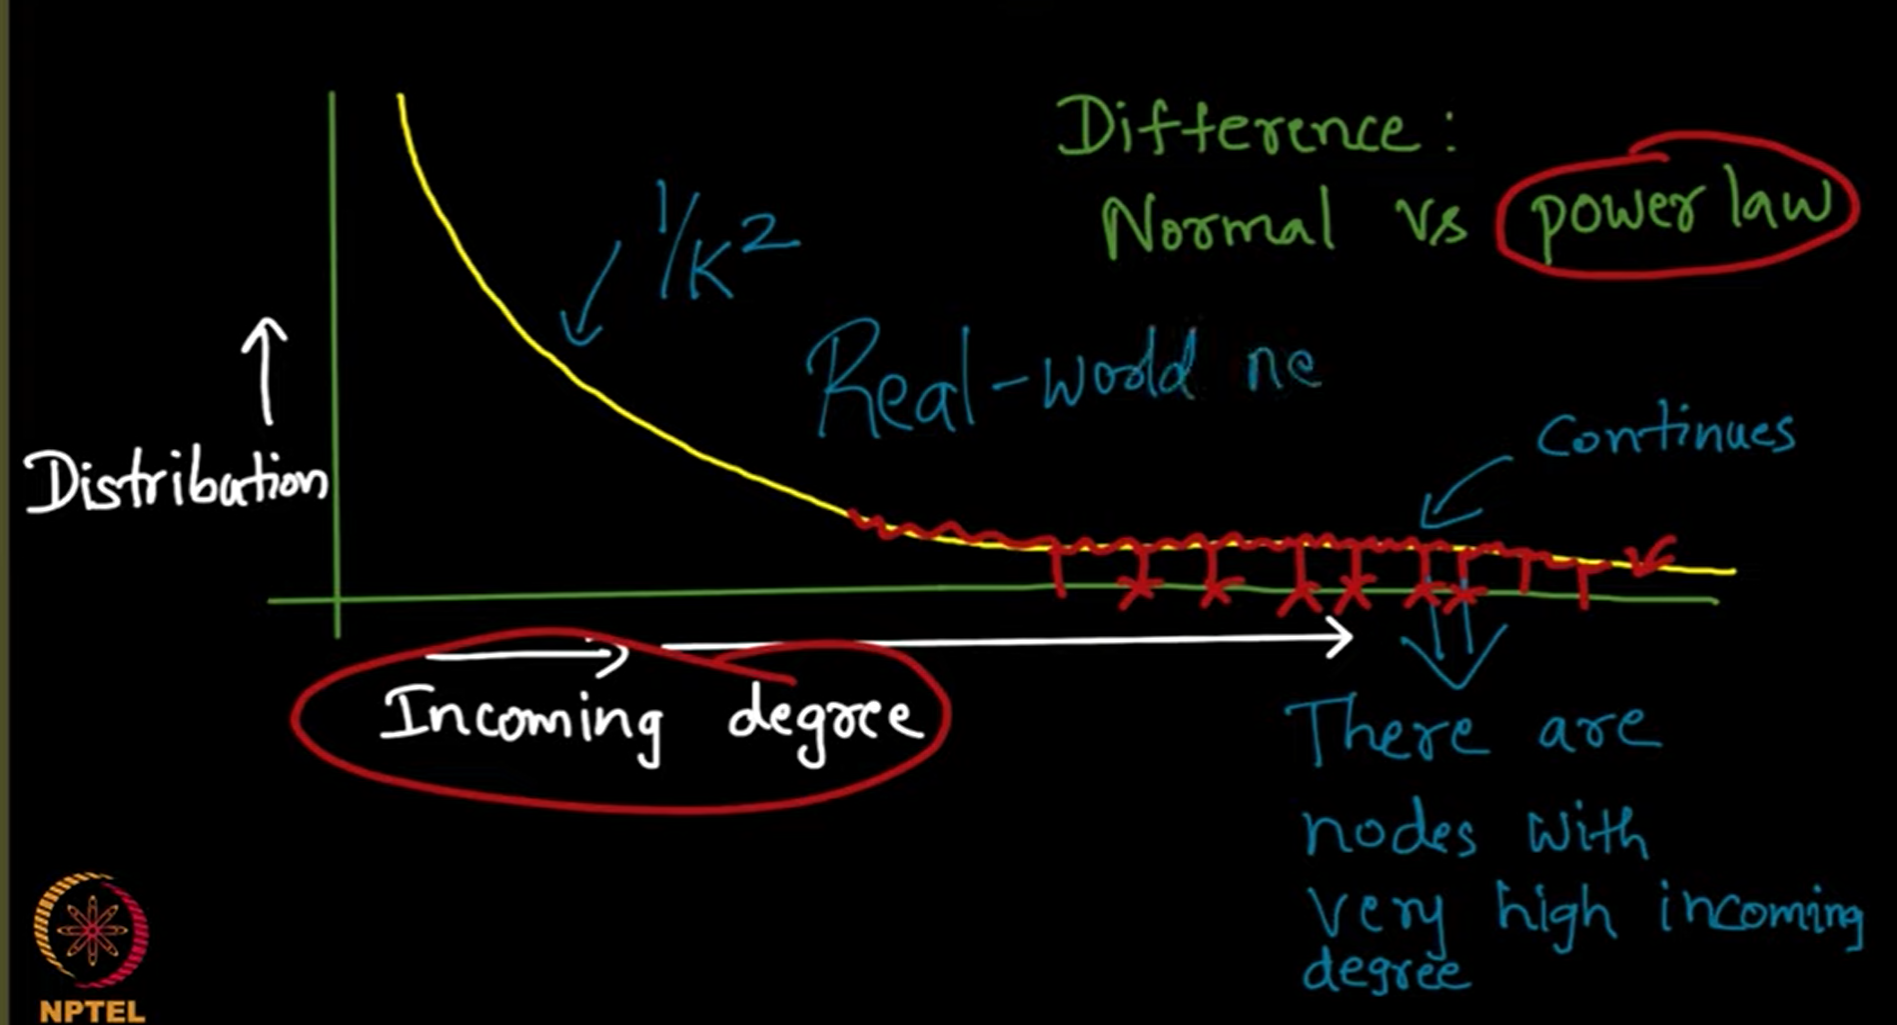 Difference:
Normal vs power law
1/K2
Real-world ne
Continues
Distribution
Incoming degree
There are
nodes with
very high incoming
degree
NPTEL